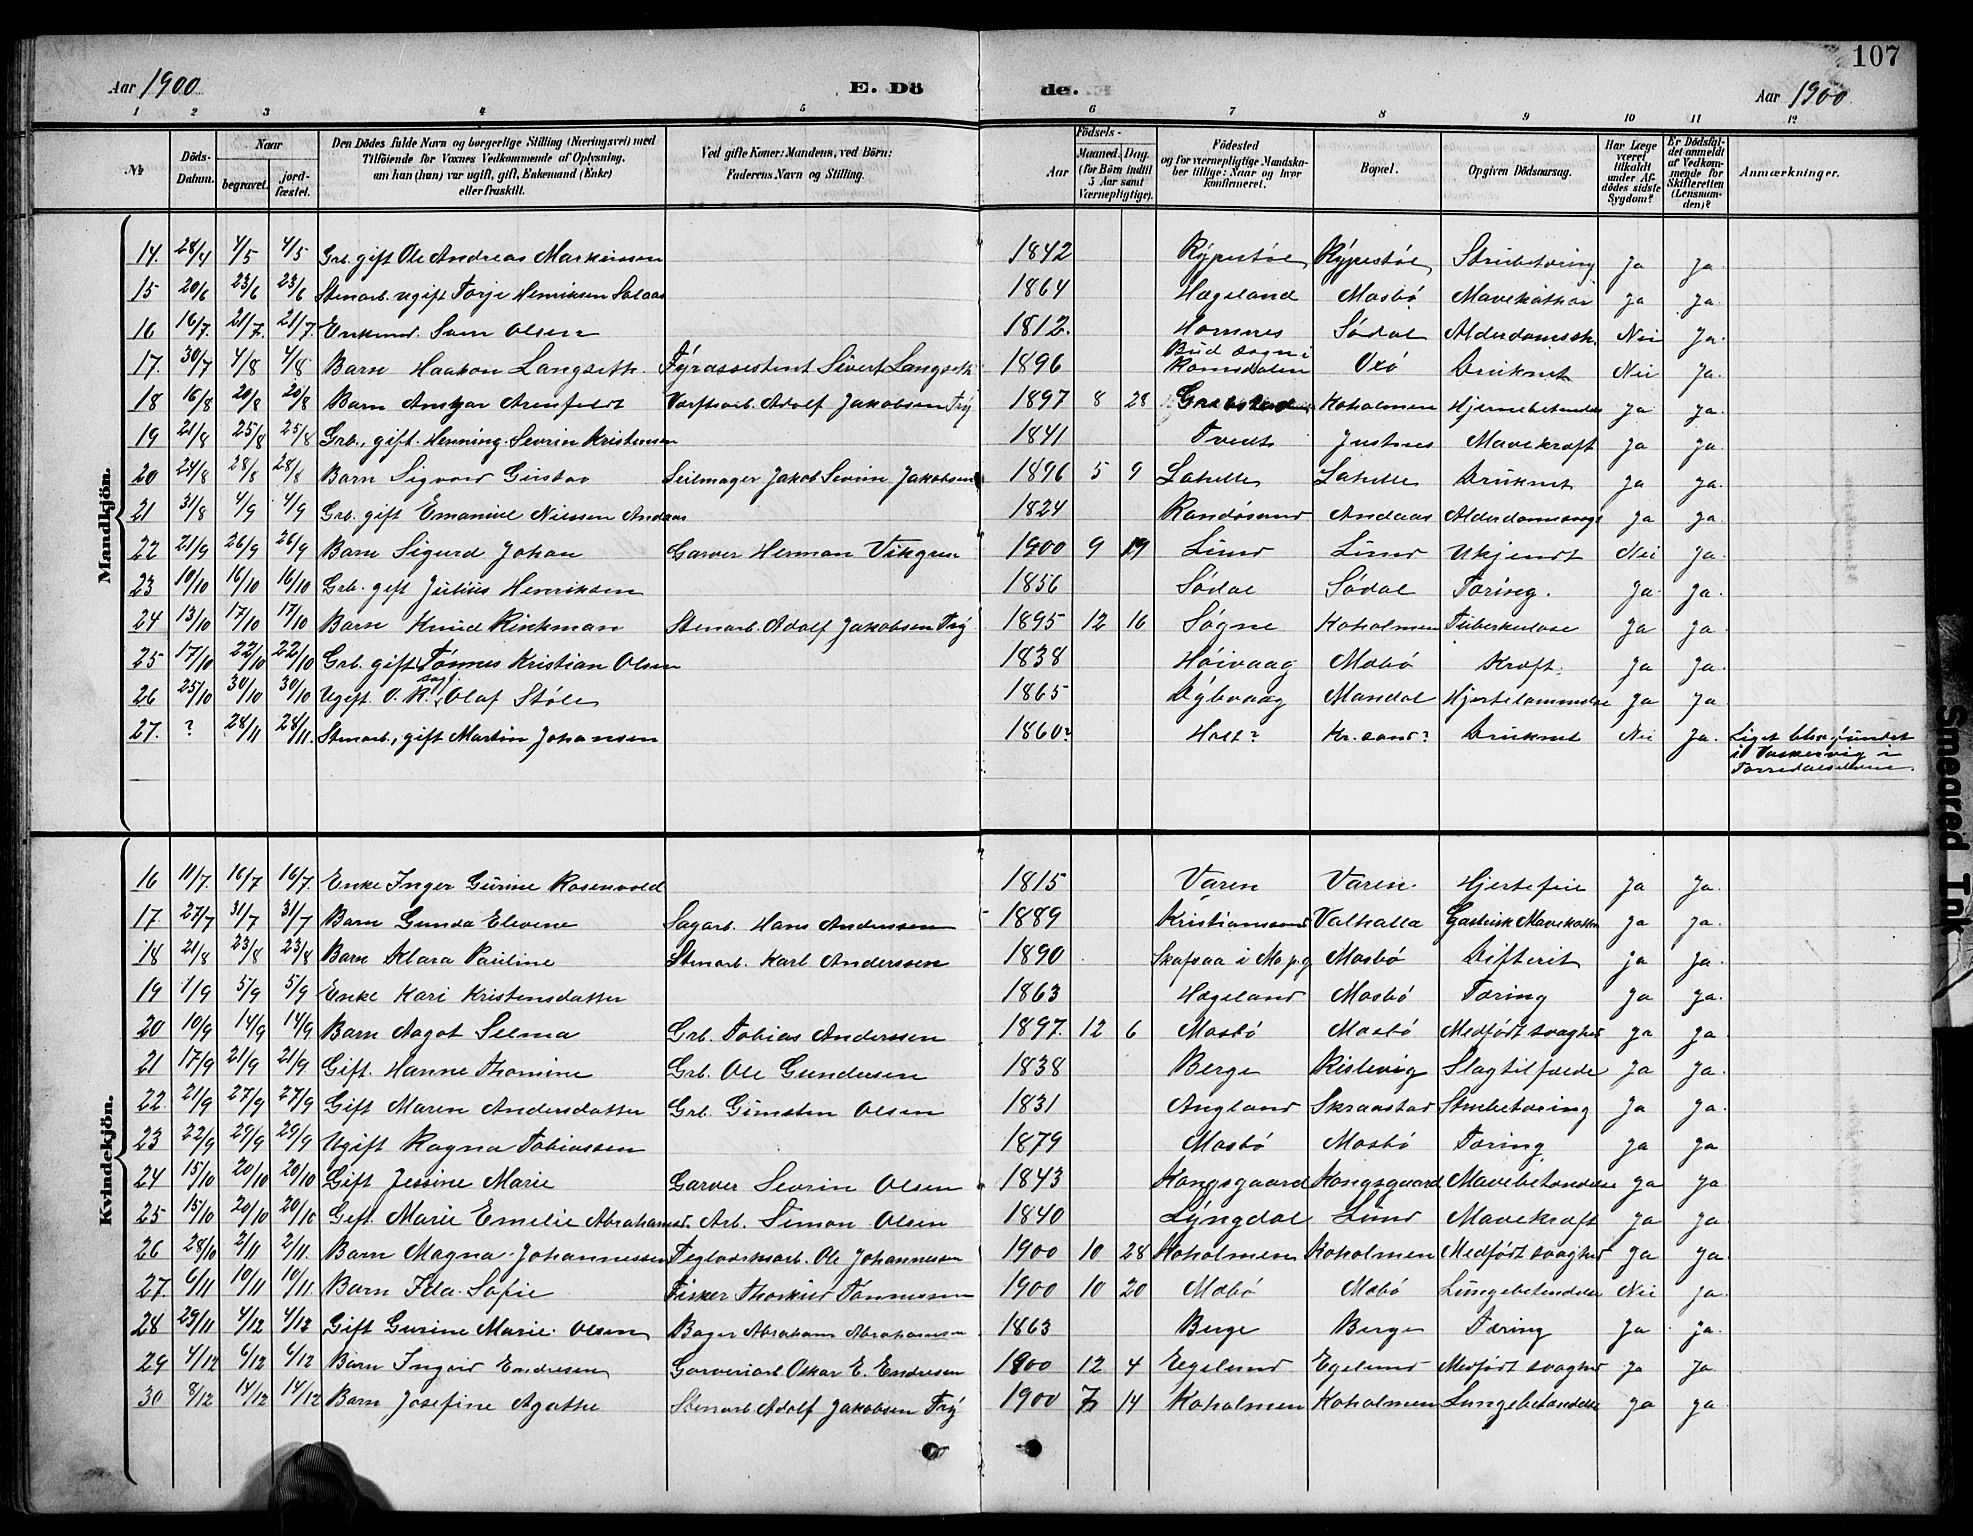 107
Aar 1900 E. Dö de. Aar 1900.
1 2 3 4 5 6 7 8 9 10 11 12
№ Döds-Datum. Naar begravet. jordfæstet. Den Dödes fulde Navn og borgerlige Stilling (Næringsvei) med Tilföiende for Voxnes Vedkommende af Oplysning, om han (hun) var ugift, gift, Enkemand (Enke) eller fraskilt. Ved gifte Koner: Mandens, ved Börn: Faderens Navn og Stilling. Födsels- Aar Maaned. Dag. (for Börn indtil 5 Aar samt Værnepligtige). Födested og for værnepligtige Mandskaber tillige: Naar og hvor konfirmeret. Bopæl. Opgiven Dödsaarsag. Har Læge været tilkaldt under Afdödes sidste Sygdom? Er Dödsfaldet anmeldt af Vedkommende for Skifteretten (Lensmanden)? Anmærkninger.
Mandkjön.
14. 28/4 4/5 4/5 Grb. gift Ole Andreas 1842 Rypestøl Rypestøl Strubetæring Ja Ja.
15 20/6 23/6 23/6 Stenarb. ugift Torje Henriksen 1864 Hægeland Mosbø Mavekatar Ja Ja.
16 16/7. 21/7. 21/7. Enkemd. Olsen 1812. Homnes Sødal Alderdomssv. Nei Ja.
17. 30/7 4/8 4/8 Barn Haakon Langseth Fyrassistent Sivert Langseth 1896 Bud sogn i Romsdalen Oxø Druknet Nei Ja.
18 16/8 20/8 20/8 Barn Arenfeldt Værftsarb. Adolf Jakobsen Try 1897 8 28 Koholmen Hjernebetændelse Ja Ja.
19 21/8 25/8 25/8 Grb., gift. Henning Sevrin Kristensen 1841 Tveit Justnes Mavekræft Ja Ja.
20 24/8 28/8 28/8 Barn Sigvard Gustav Seilmager Jakob Sevrin Jakobsen 1896 5 9 Lahelle Lahelle Druknet Ja Ja.
21 31/8 4/9 4/9 Grb. gift Emanuel Nilssen Andaas 1824 Randøsund Andaas Ja Ja.
22 21/9 26/9 26/9 Barn Sigurd Johan Garver Herman Vikgren 1900 9 19 Lund Lund Ukjendt Nei Ja.
23 10/10 16/10 16/10 Grb. gift Julius Henriksen 1856 Sødal Sødal Tæring. Ja Ja.
24 13/10 17/10 17/10 Barn Knud Rinkman Stenarb. Adolf Jakobsen Try 1895 12 16 Søgne Koholmen Tuberkulose Ja Ja.
25 17/10 22/10 22/10 Grb. gift Tønnes Kristian Olsen 1838 Høivaag Mobø Kræft. Ja Ja.
26 25/10 30/10 30/10 Ugift O. R. sagf. Olaf Støle 1865 Dybvaag Mandal Hjertelammelse Ja Ja
27. ? 28/11 28/11. Stenarb., gift Martin Johansen 1860? Holt? Kr.sand? Druknet Nei Ja. Liget blev fundet i Vaskevig i Torridalselven.
Kvindekjön.
16 11/7. 16/7 16/7. Enke Inger Gurine Rosenvold 1815 Varen Varen. Hjertefeil Ja Ja.
17. 27/7 31/7 31/7 Barn Gunda Elevine Sagarb. Hans Andersen 1889 Kristianssand Valhalla Gastrisk Mavekatar Ja Ja.
18 21/8 23/8 23/8 Barn Klara Pauline Stenarb. Karl Anderssen 1890 Skafsaa i Mo p.g Mosbø Difterit Ja Ja.
19 1/9 5/9 5/9 Enke Kari Kristensdatter 1863 Hægeland Mosbø Tæring Ja Ja.
20 10/9 14/9 14/9. Barn Aagot Selma Grb. Tobias Anderssen 1897. 12 6 Mosbø Mosbø Medfødt svaghed Ja Ja.
21 17/9 21/9 21/9 Gift. Hanne Thomine Grb. Ole Gundersen 1838 Berge Rislevig Slagtilfælde Ja Ja.
22. 21/9 27/9 27/9 Gift Maren Andersdatter Grb. Gunsten Olsen 1831 Angland Skraastad Strubetæring Ja Ja.
23 22/9 29/9 29/9 Ugift Ragna Tobiassen 1879 Mosbø Mosbø Tæring Ja Ja
24 15/10 20/10 20/10 Gift Jessine Marie Garver Sevrin Olsen 1843 Kongsgaard Kongsgaard Mavebetændelse Ja Ja
25 15/10 20/10 20/10 Gift. Marie Emelie Abrahamsd. Arb. Simon Olsen 1840 Lyngdal Lund Mavekræft Ja Ja
26 28/10 2/11 2/11. Barn Magna Johannessen Teglværksarb. Ole Johannessen 1900 10 28 Koholmen Koholmen Medfødt svaghed Ja Ja.
27. 6/11 10/11 10/11. Barn Ida Sofie Fisker Tønnessen 1900 10 20 Mobø Mobø Lungebetændelse Nei Ja.
28 29/11 4/12 4/12 Gift Gurine Marie Olsen Bager Abraham Abrahamsen 1863 Berge Berge Tæring Ja Ja.
29 4/12 6/12 6/12 Barn Ingrid Endresen Garveriarb. Oskar E. Endresen 1900 12 4 Egelund Egelund Medfødt svaghed Ja Ja.
30 8/12 14/12 14/12 Barn Josefine Agathe Stenarb Adolf Jakobsen Try 1900 7 14 Koholmen Koholmen Lungebetændelse Ja Ja
Smeared Ink